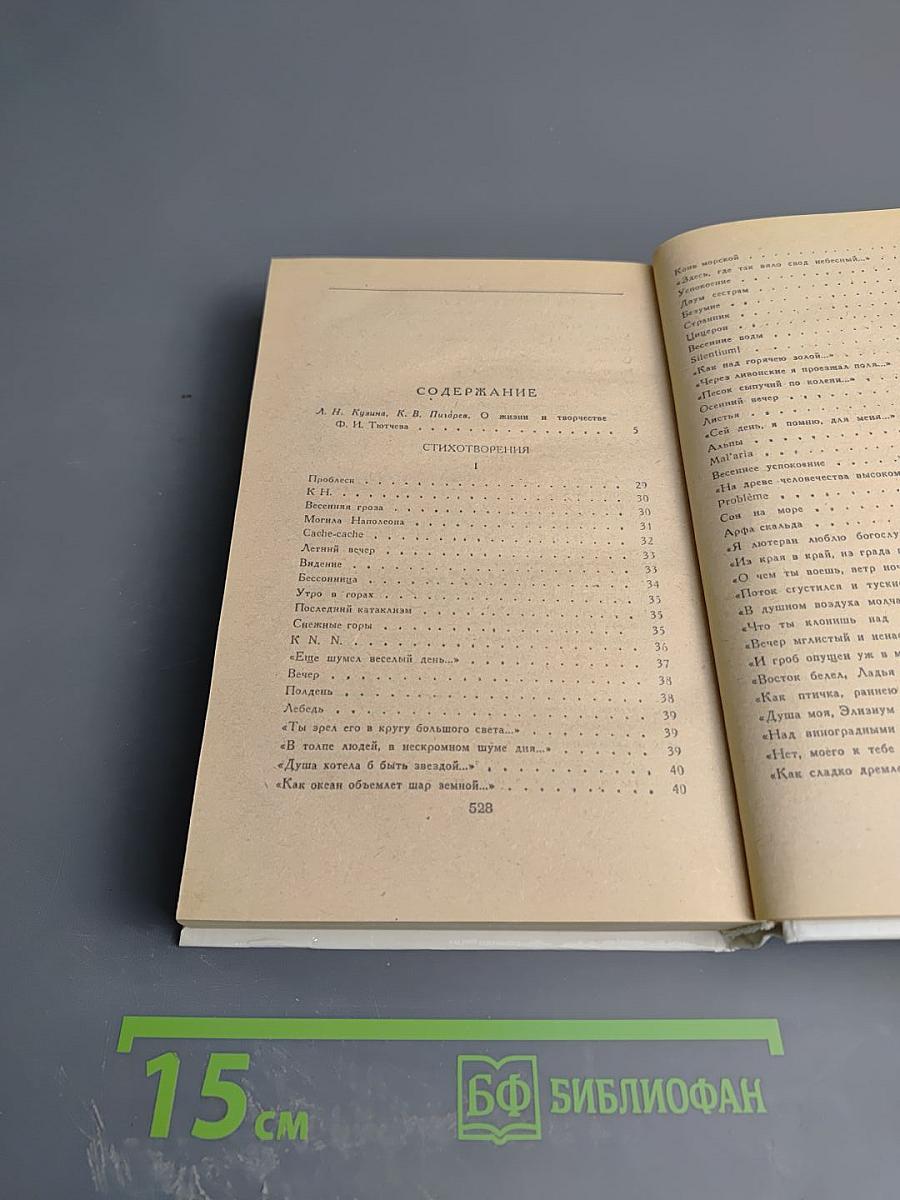 СОДЕРЖАНИЕ
Л. Н. Кузина, К. В. Пигарев. О жизни и творчестве
Ф. И. Тютчева 5
СТИХОТВОРЕНИЯ
I
Проблеск 29
К Н. 30
Весенняя гроза 30
Могила Наполеона 31
Cache-cache 32
Летний вечер 33
Видение 33
Бессонница 34
Утро в горах 35
Последний катаклизм 35
Снежные горы 35
К N. N. 36
«Еще шумел веселый день...» 37
Вечер 38
Полдень 38
Лебедь 39
«Ты зрел его в кругу большого света...» 39
«В толпе людей, в нескромном шуме дня...» 39
«Душа хотела б быть звездой...» 40
«Как океан объемлет шар земной...» 40
528
Конь морской
«Здесь, где так вяло свод небесный...»
Успокоение
Двум сестрам
Безумие
Странник
Цицерон
Весенние воды
Silentium!
«Как над горячею золой...»
«Через ливонские я проезжал поля...»
«Песок сыпучий по колени...»
Осенний вечер
Листья
«Сей день, я помню, для меня...»
Альпы
Mal'aria
Весеннее успокоение
«На древе человечества высоком
Problème
Сон на море
Арфа скальда
«Я лютеран люблю богослу
«Из края в край, из града
«О чем ты воешь, ветр ноч
«Поток сгустился и тускн
«В душном воздуха молча
«Что ты клонишь над
«Вечер мглистый и ненас
«И гроб опущен уж в м
«Восток белел, Ладья
«Как птичка, раннею
«Душа моя, Элизиум
«Над виноградными
«Нет, моего к тебе
«Как сладко дремле
15 см
БФ БИБЛИОФАН